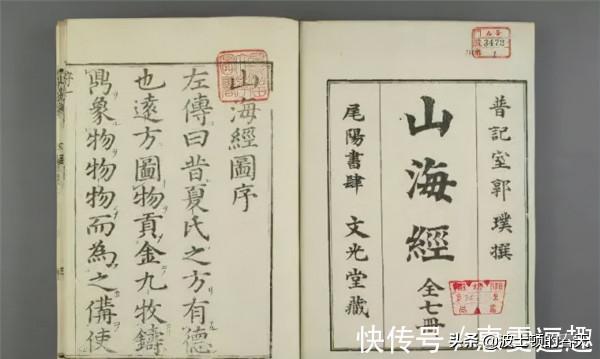 3472
1
晋記室郭璞撰
山海經
全七冊
尾陽書肆 文光堂藏
山海經圖序
左傳曰昔夏氏之方有德
也遠方圖物貢金九牧鑄
鼎象物物物而為之備使
快传号
头条 @波士顿的